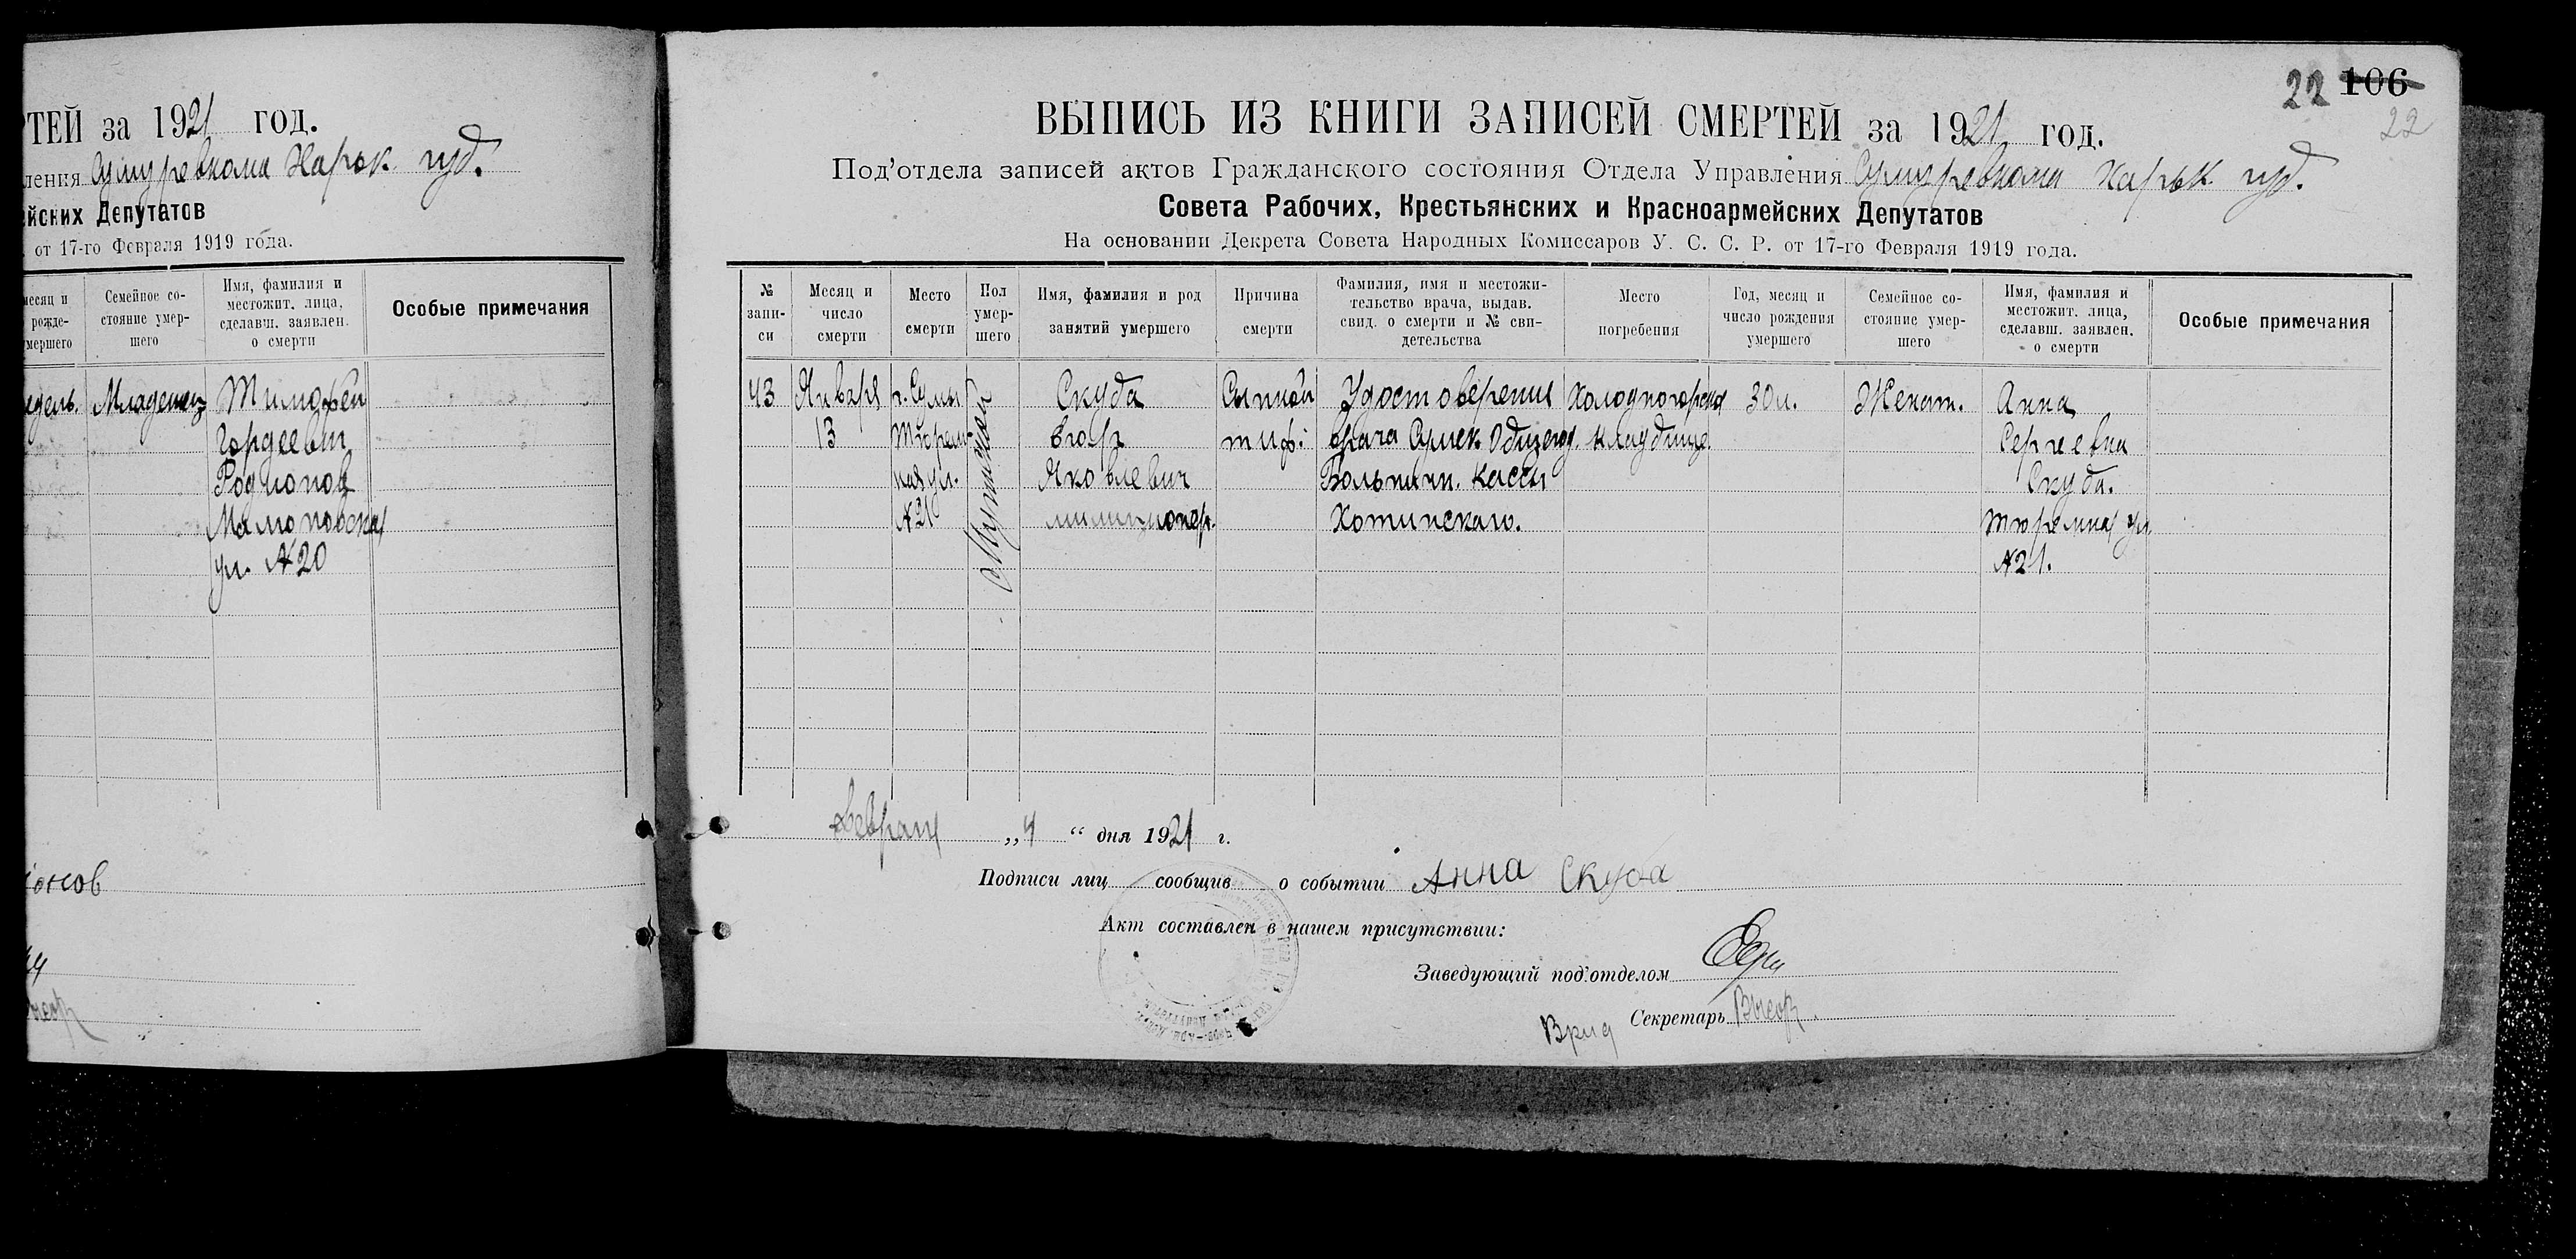 ТЕЙ за 1921 год.
ления Сумуревкома Харьк. губ.
йских Депутатов
от 17-го Февраля 1919 года.
месяц и
рожде-
умершего
Семейное со-
стояние умер-
шего
Имя, фамилия и
местожит. лица,
сделавш. заявлен.
о смерти
Особые примечания
Младенец
Тимофей
Гордеевич
Родионов
ул. №20
22 106
22
ВЫПИСЬ ИЗ КНИГИ ЗАПИСЕЙ СМЕРТЕЙ за 1921 год.
Под'отдела записей актов Гражданского состояния Отдела Управления Сумуревкома Харьк. губ.
Совета Рабочих, Крестьянских и Красноармейских Депутатов
На основании Декрета Совета Народных Комиссаров У. С. С. Р. от 17-го Февраля 1919 года.
№
запи-
си
Месяц и
число
смерти
Место
смерти
Пол
умер-
шего
Имя, фамилия и род
занятий умершего
Причина
смерти
Фамилия, имя и местожи-
тельство врача, выдав.
свид. о смерти и № сви-
детельства
Место
погребения
Год, месяц и
число рождения
умершего
Семейное со-
стояние умер-
шего
Имя, фамилия и
местожит. лица,
сделавш. заявлен.
о смерти
Особые примечания
43
Января
13
г. Сумы
Тюрем-
ная ул.
№21
Мужской
Скуба
Егор
Яковлевич
милиционер.
Сыпной
тиф.
Удостоверения
врача
Больничн. кассы
Хотинского.
Холодногорское
кладбище
30 л.
Женат.
Анна
Сергеевна
Скуба.
Тюремная ул.
№21.
Февраля „4“ дня 1921 г.
Подписи лиц сообщив о событии Анна Скуба
Акт составлен в нашем присутствии:
Заведующий под'отделом
Врид Секретарь